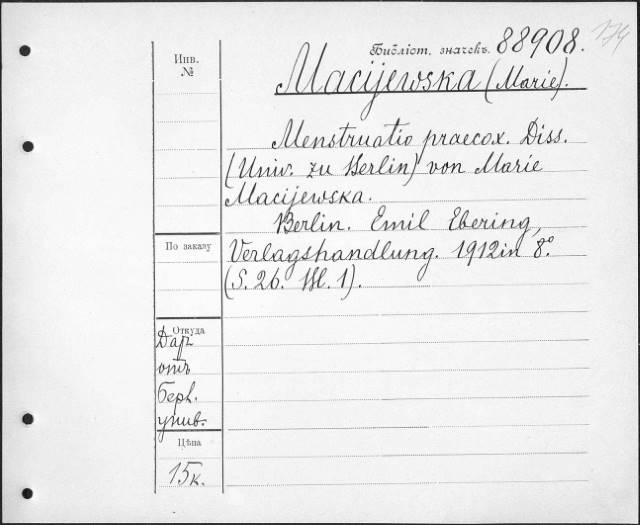 174
Библіот. значекъ 88908.
Инв.
№
Macijewska (Marie).
Menstruatio praecox. Diss.
(Univ. zu Berlin) von Marie
Macijewska.
Berlin. Emil Ebering,
Verlagshandlung. 1912 in 8°.
(S. 26. Bl. 1).
По заказу
Откуда
Даръ
отъ
Берл.
унив.
Цѣна
15 к.